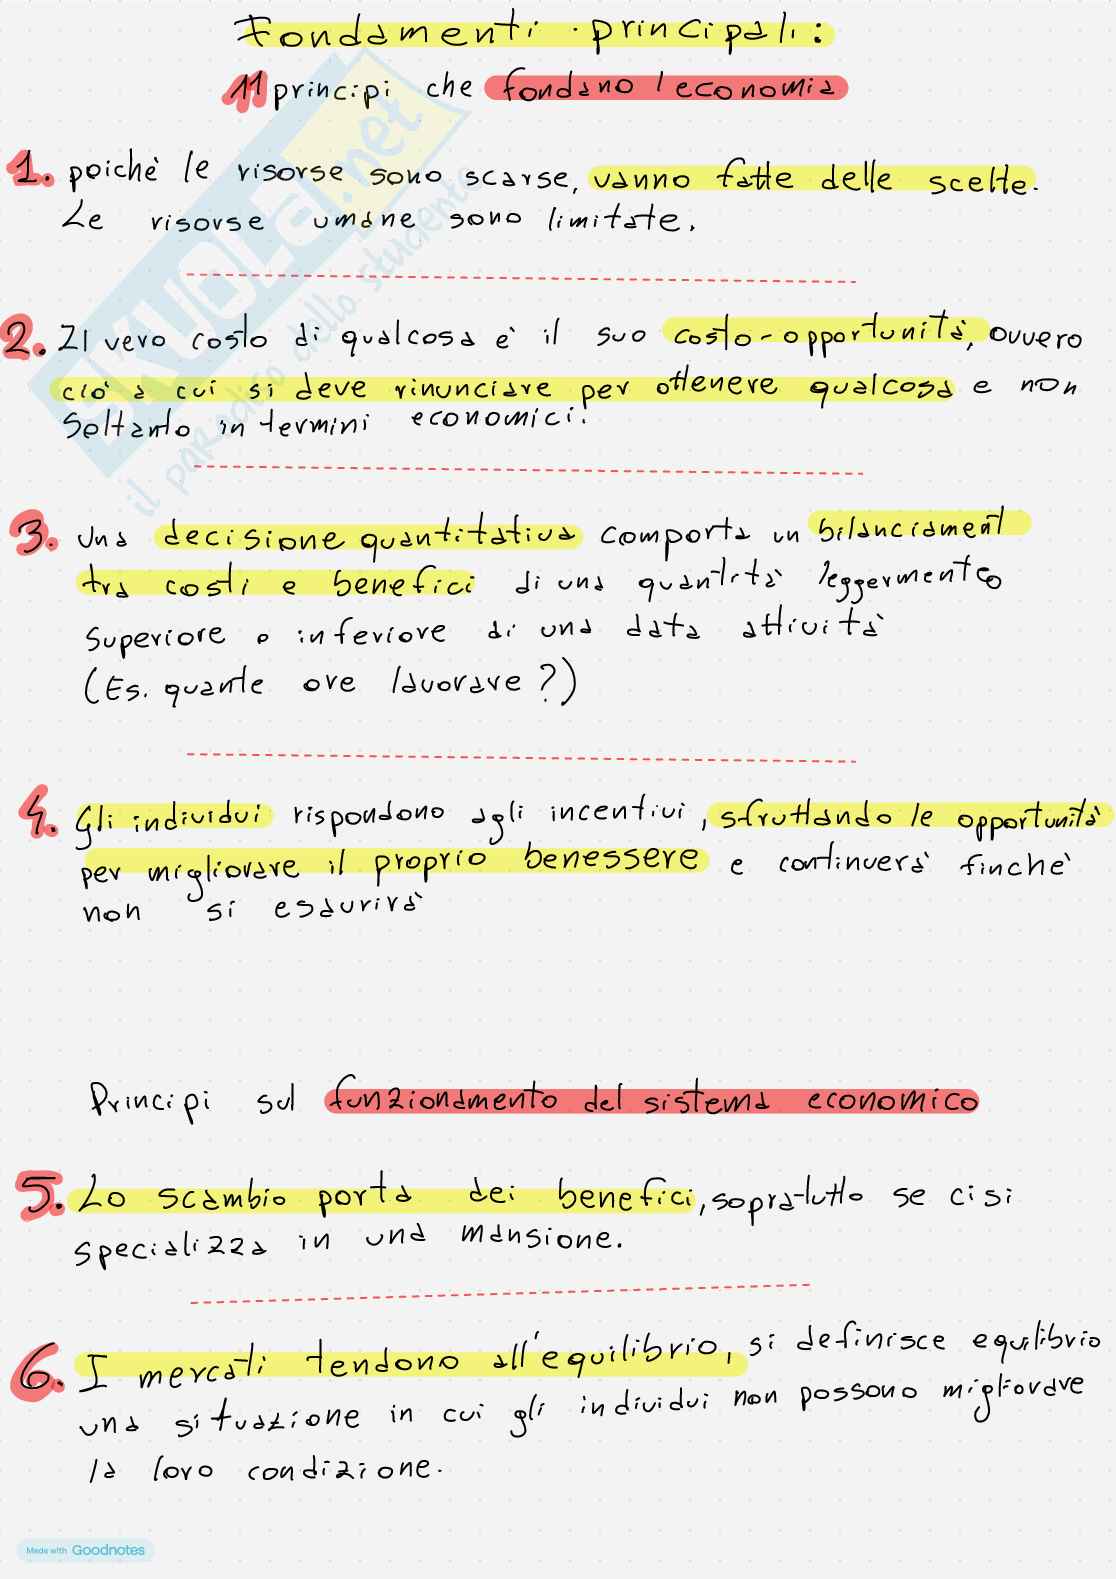 Fondamenti principali:
11 principi che fondano l'economia
1. poichè le risorse sono scarse, vanno fatte delle scelte.
Le risorse umane sono limitate.
2. Il vero costo di qualcosa è il suo costo-opportunità, ovvero
ciò a cui si deve rinunciare per ottenere qualcosa e non
Soltanto in termini economici.
3. Una decisione quantitativa comporta un bilanciament
tra costi e benefici di una quantità leggermenteo
superiore o inferiore di una data attività
(Es. quante ore lavorare?)
4. Gli individui rispondono agli incentivi, sfruttando le opportunità
per migliorare il proprio benessere e continuerà finchè
non si esaurirà
Principi sul funzionamento del sistema economico
5. Lo scambio porta dei benefici, sopratutto se ci si
specializza in una mansione.
6. I mercati tendono all'equilibrio, si definisce equilibrio
una situazione in cui gli individui non possono migliorare
la loro condizione.
SKUOLA.net
il paradiso dello studente
Made with Goodnotes